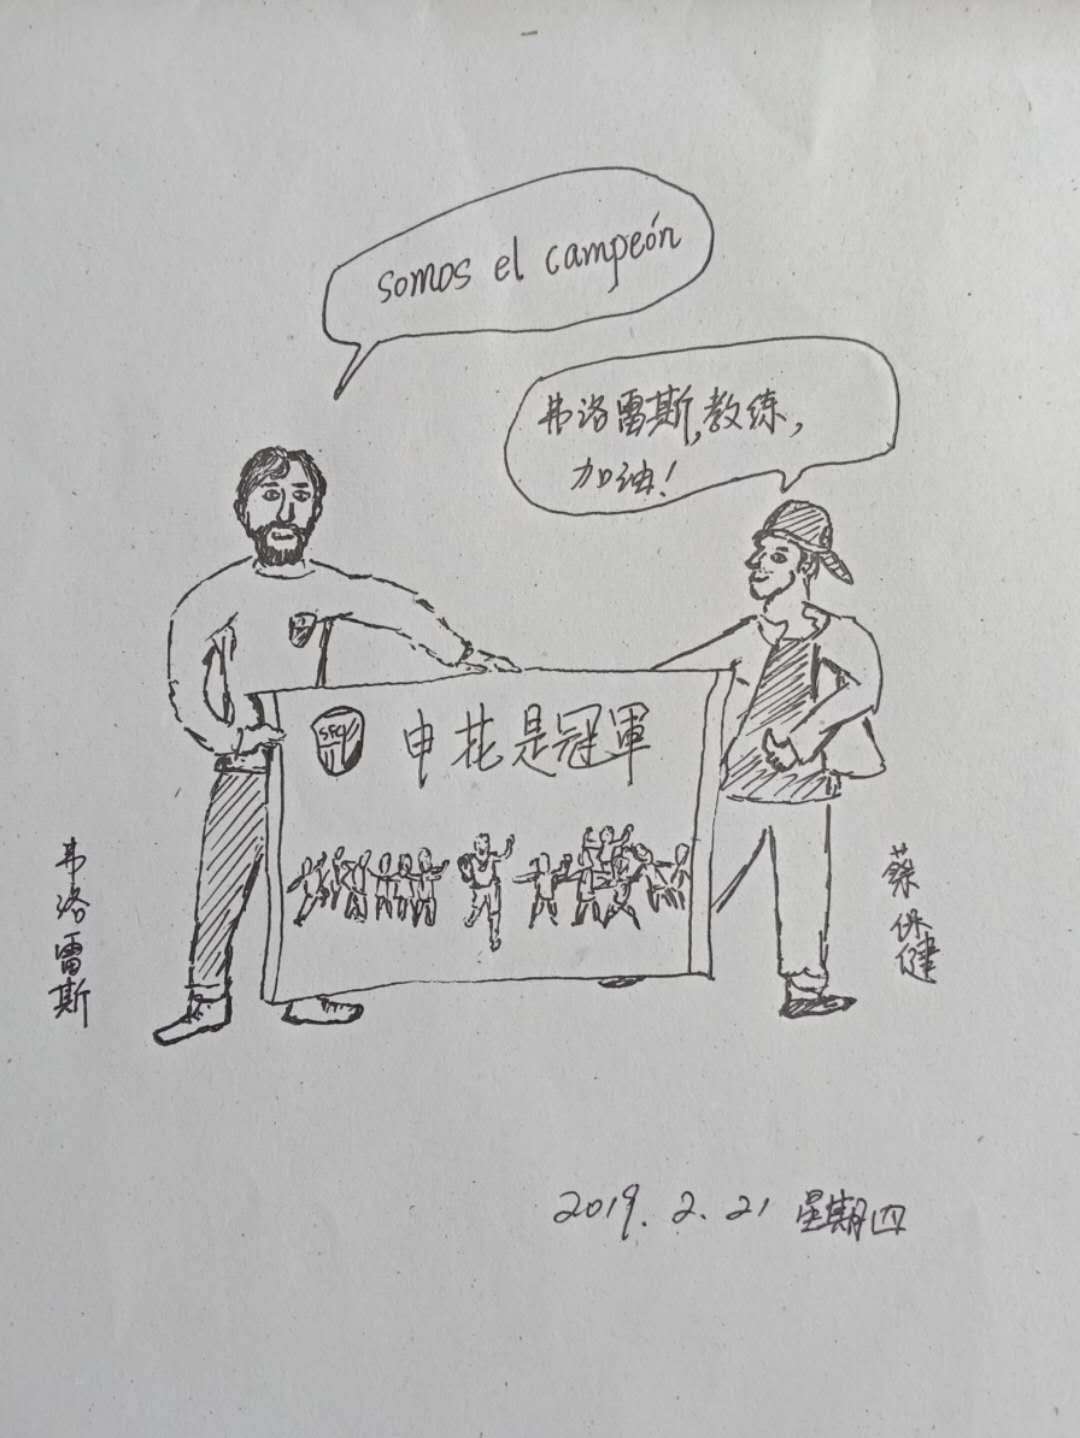 somos el campeón
弗洛雷斯,教练,
加油!
SFC
申花是冠軍
弗洛雷斯
蔡保健
2019.2.21 星期四